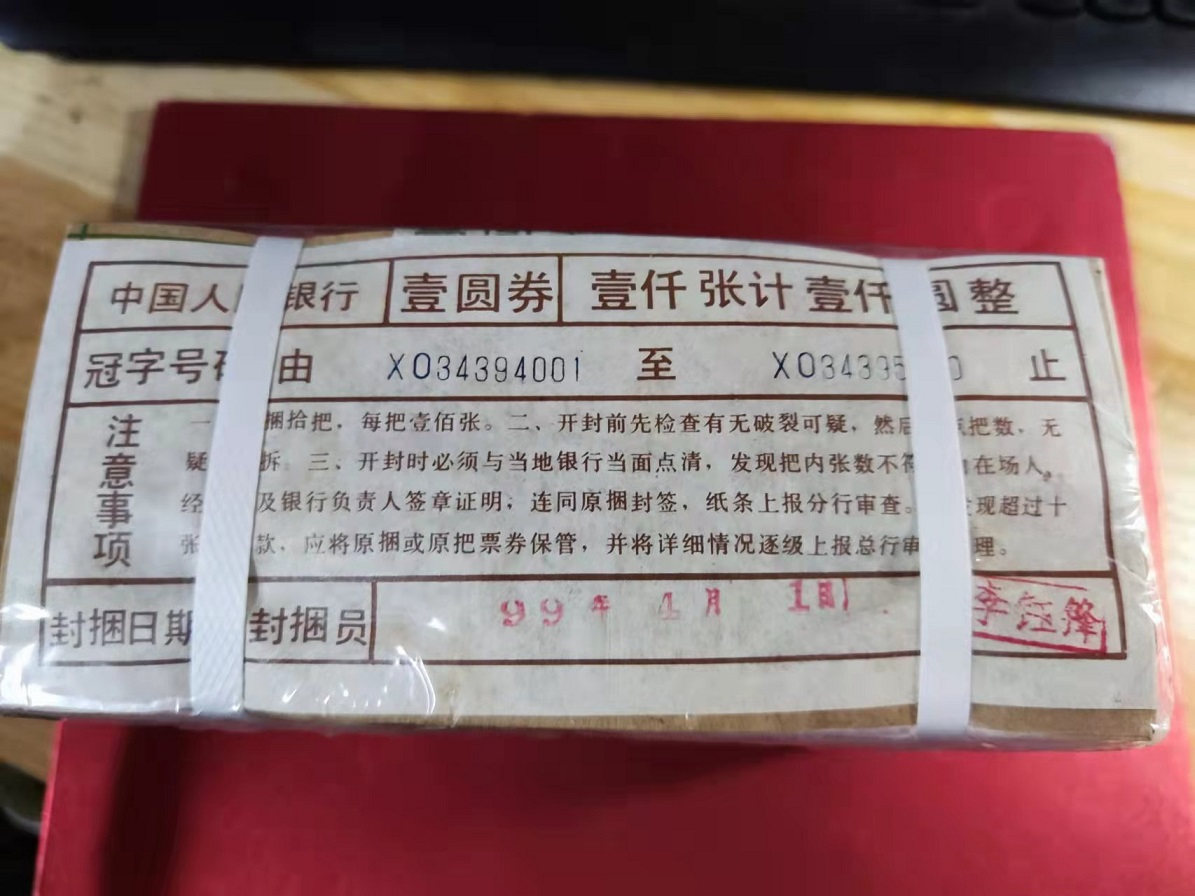 中国人 银行 壹圆券 壹仟张计壹仟 圆整
冠字号 由 XO34394001 至 XO34395 0 止
注意事项
一 捆拾把，每把壹佰张。二、开封前先检查有无破裂可疑，然后 点把数，无
疑 拆 三、开封时必须与当地银行当面点清，发现把内张数不符 在场人。
经 及银行负责人签章证明，连同原捆封签，纸条上报分行审查。 发现超过十
张 款，应将原捆或原把票券保管，并将详细情况逐级上报总行审 理。
封捆日期 封捆员 99年 1月 1日 李钰锋